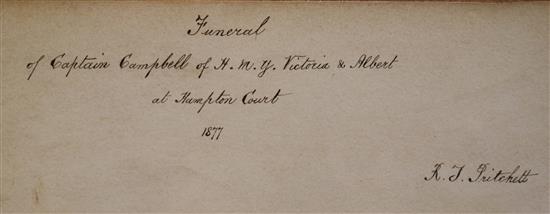 Funeral
of Captain Campbell of H.M.Y. Victoria & Albert
at Hampton Court
1877
R. T. Pritchett